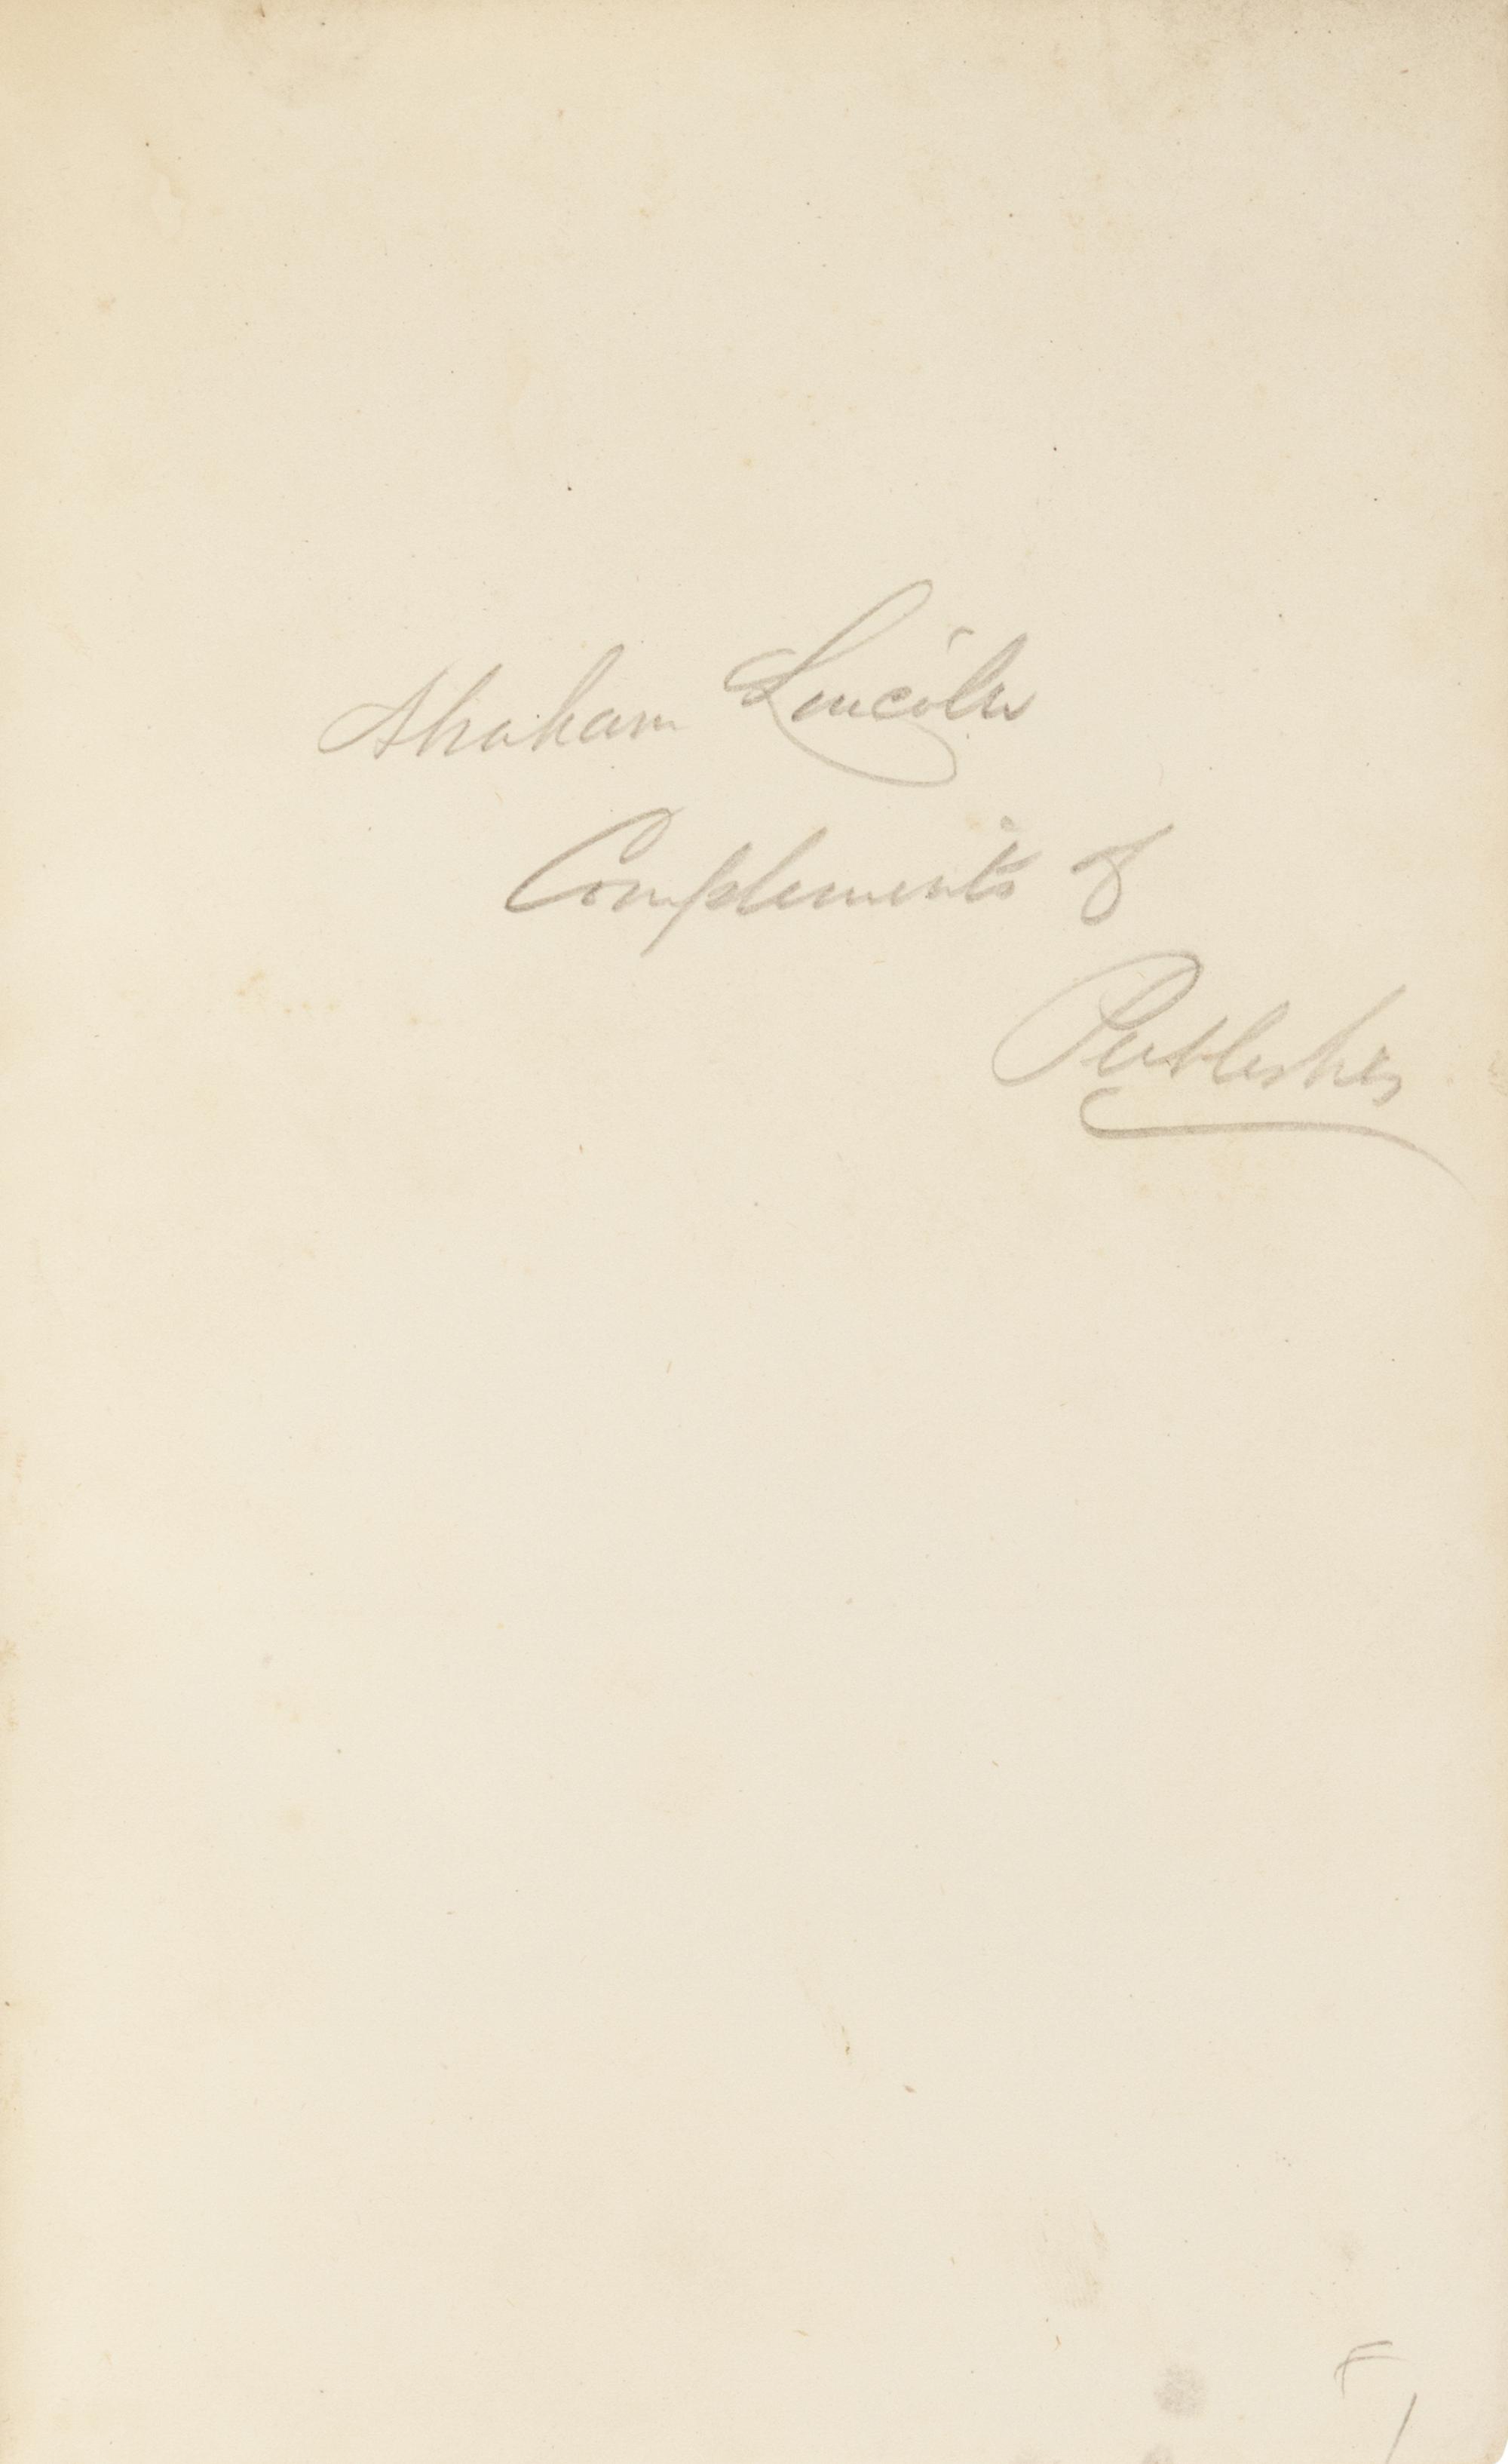 Abraham Lincoln
Complements of
Publisher
F